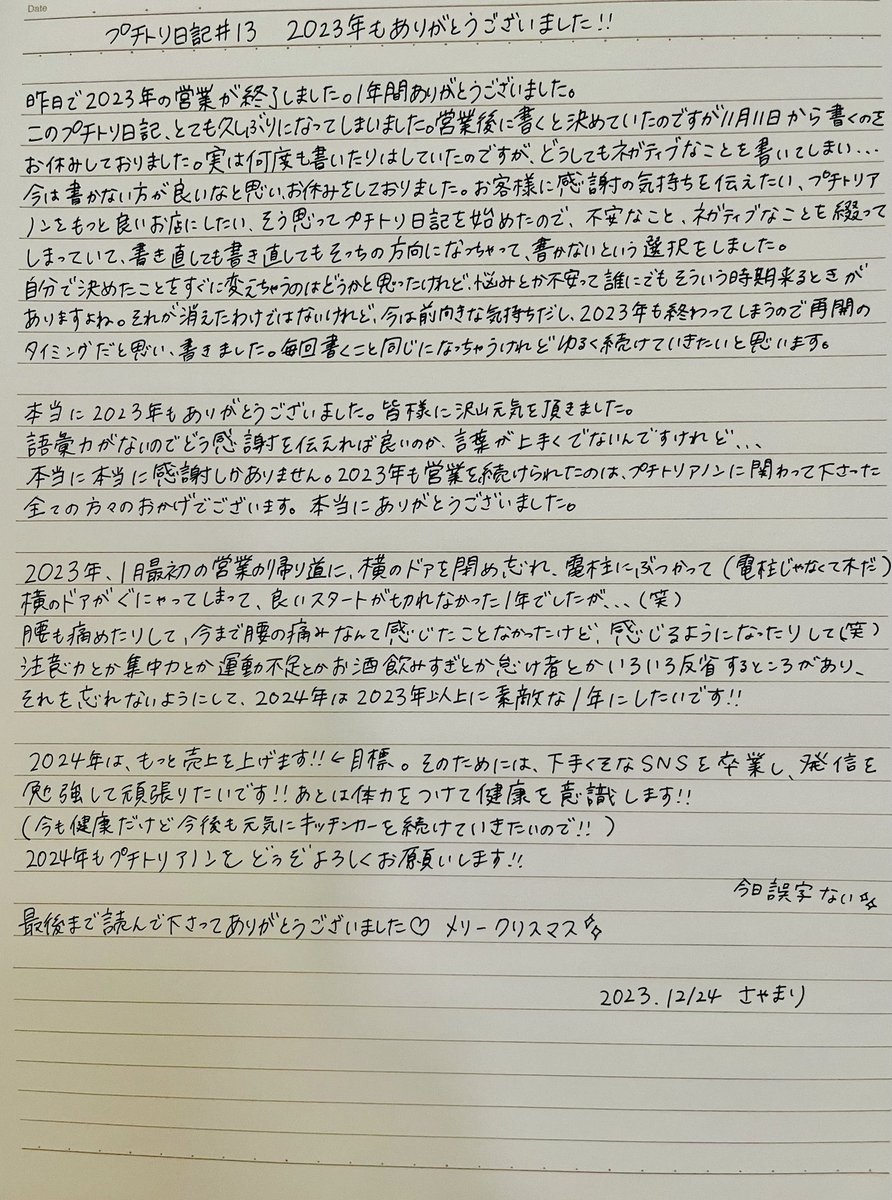 Date
プチトリ日記#13 2023年もありがとうございました!!
昨日で2023年の営業が終了しました。1年間ありがとうございました。
このプチトリ日記、とても久しぶりになってしまいました。営業後に書くと決めていたのですが11月11日から書くのを
お休みしておりました。実は何度も書いたりはしていたのですが、どうしてもネガティブなことを書いてしまい...
今は書かない方が良いなと思い、お休みをしておりました。お客様に感謝の気持ちを伝えたい、プチトリア
ノンをもっと良いお店にしたい、そう思ってプチトリ日記を始めたので、不安なこと、ネガティブなことを綴って
しまっていて、書き直しても書き直してもそっちの方向になっちゃって、書かないという選択をしました。
自分で決めたことをすぐに変えちゃうのはどうかと思ったけれど、悩みとか不安って誰にでもそういう時期来るときが
ありますよね。それが消えたわけではないけれど、今は前向きな気持ちだし、2023年も終わってしまうので再開の
タイミングだと思い、書きました。毎回書くこと同じになっちゃうけれどゆるく続けていきたいと思います。
本当に2023年もありがとうございました。皆様に沢山元気を頂きました。
語彙力がないのでどう感謝を伝えれば良いのか、言葉が上手くでないんですけれど...
本当に本当に感謝しかありません。2023年も営業を続けられたのは、プチトリアノンに関わって下さった
全ての方々のおかげでございます。本当にありがとうございました。
2023年、1月最初の営業の帰り道に、横のドアを閉め忘れ、電柱にぶつかって(電柱じゃなくて木だ)
横のドアがぐにゃってしまって、良いスタートが切れなかった1年でしたが...(笑)
腰も痛めたりして、今まで腰の痛みなんて感じたことなかったけど、感じるようになったりして(笑)
注意力とか集中力とか運動不足とかお酒飲みすぎとか怠け者とかいろいろ反省するところがあり、
それを忘れないようにして、2024年は2023年以上に素敵な1年にしたいです!!
2024年は、もっと売上を上げます!!←目標。そのためには、下手くそなSNSを卒業し、発信を
勉強して頑張りたいです!!あとは体力をつけて健康を意識します!!
(今も健康だけど今後も元気にキッチンカーを続けていきたいので!!)
2024年もプチトリアノンをどうぞよろしくお願いします!!
今日誤字ない✨
最後まで読んで下さってありがとうございました♡ メリークリスマス✨
2023.12/24 さやまり